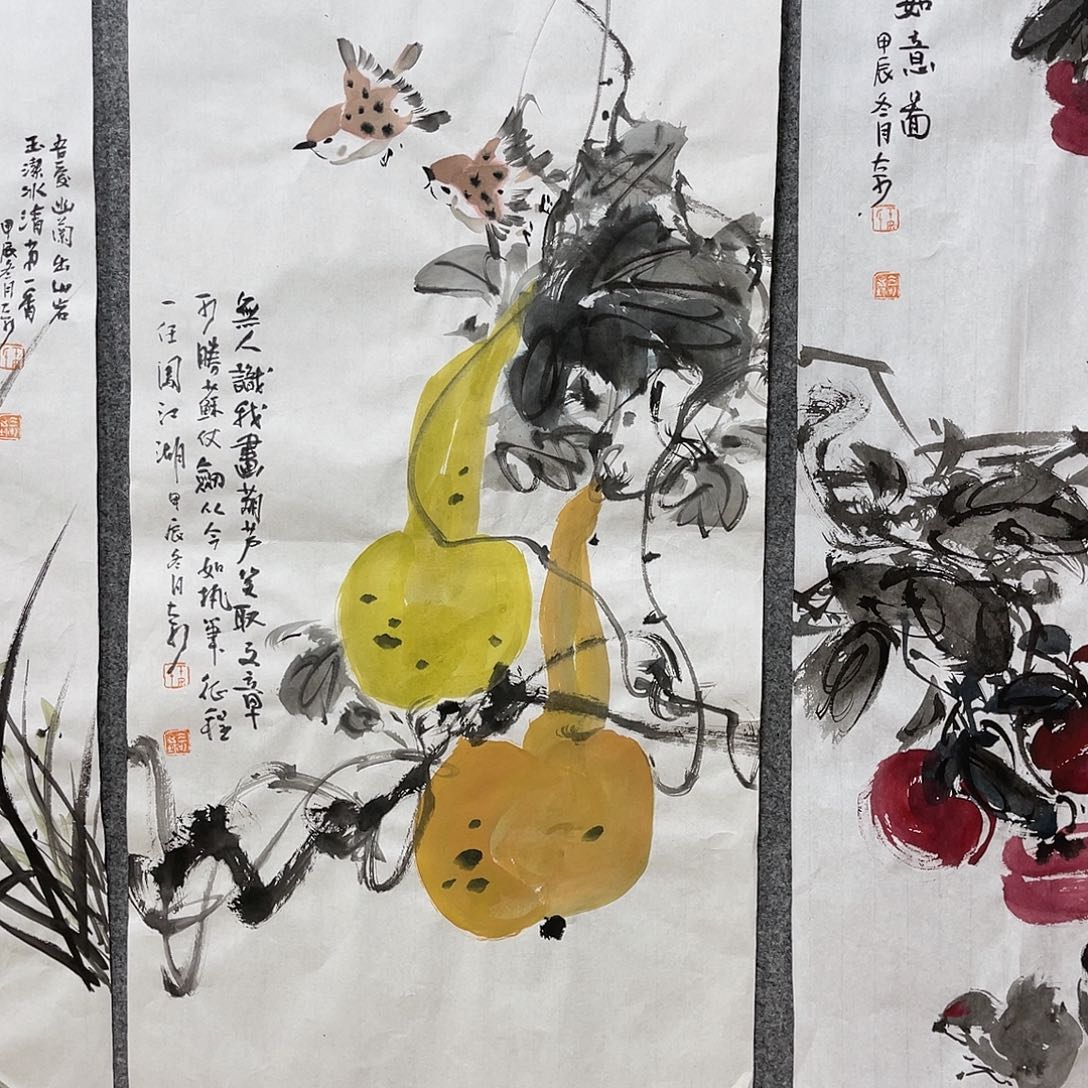 如意圖
甲辰冬月
無人識我畫葫芦笑取文章
可勝蘇仗劍从今如執筆征程
一任闖江湖甲辰冬月
吾愛幽蘭出山岩
玉潔冰清第一香
甲辰冬月